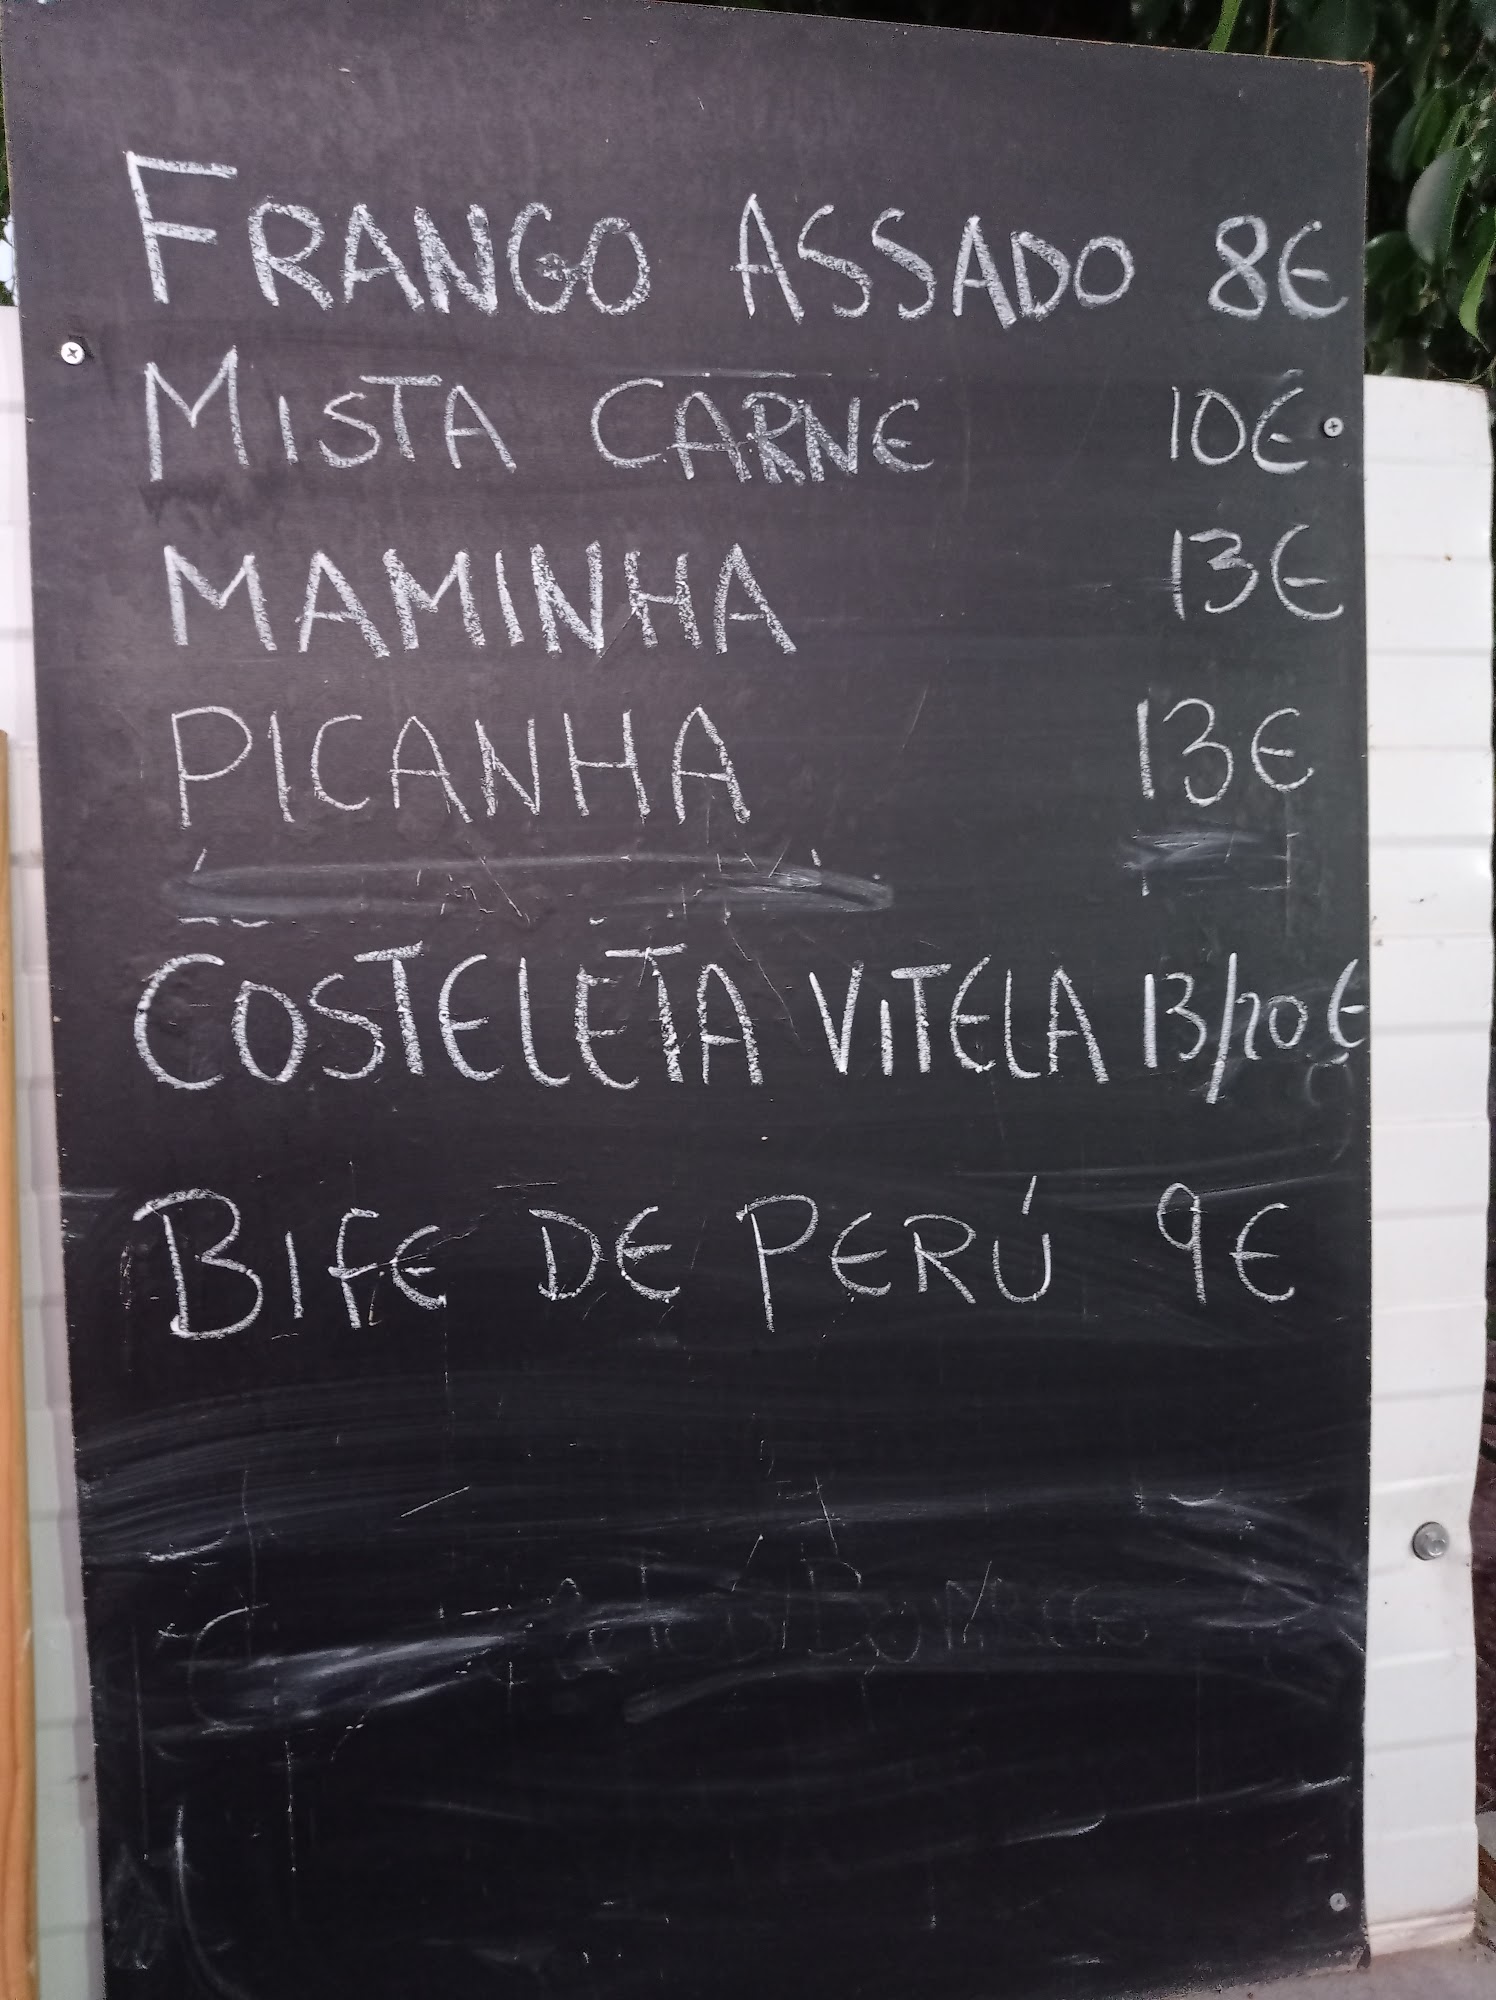 FRANGO ASSADO 8€
MISTA CARNE 10€
MAMINHA 13€
PICANHA 13€
COSTELETA VITELA 13/20€
BIFE DE PERÚ 9€